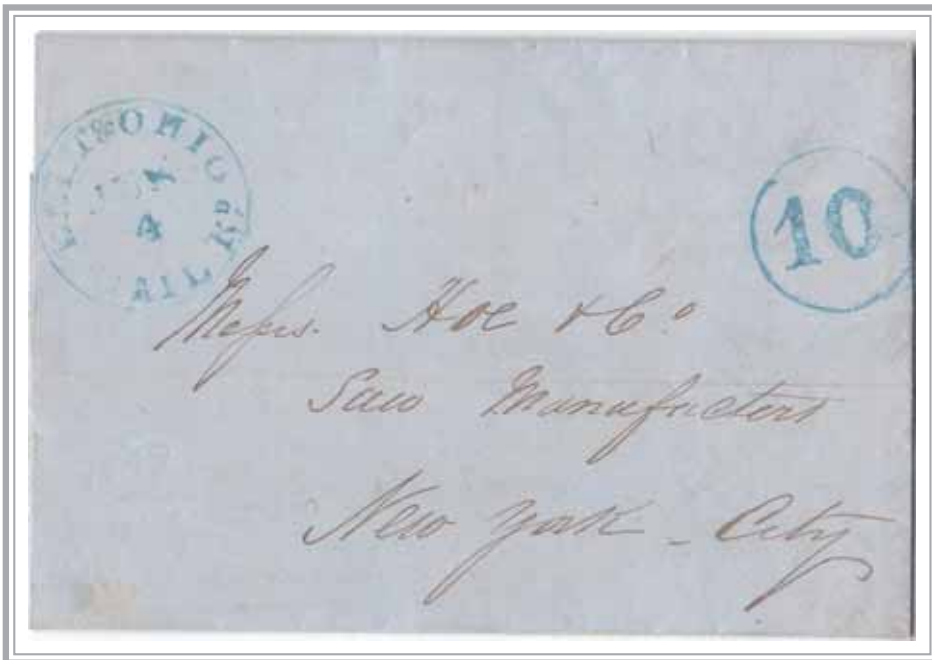 & OHIO
4
RAIL Rᴰ
10
Messrs. Hoe & Co.
Saw Manufacters
New York - City